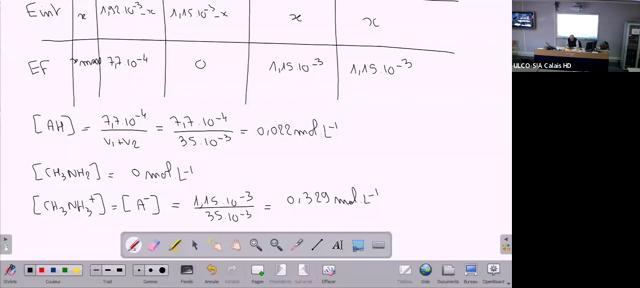 Emt x 1,92.10⁻³-x 1,15.10⁻³-x x x
EF x max 7,7.10⁻⁴ 0 1,15.10⁻³ 1,15.10⁻³
[AH] = 7,7.10⁻⁴/V1+V2 = 7,7.10⁻⁴/35.10⁻³ = 0,022 mol.L⁻¹
[CH3NH2] = 0 mol.L⁻¹
[CH3NH3⁺] = [A⁻] = 1,15.10⁻³/35.10⁻³ = 0,329 mol.L⁻¹
ULCO-SIA Calais HD
Stylets Couleur Trait Gomme Fonds Annuler Pages Effacer Tableau Web Documents Bureau OpenBoard